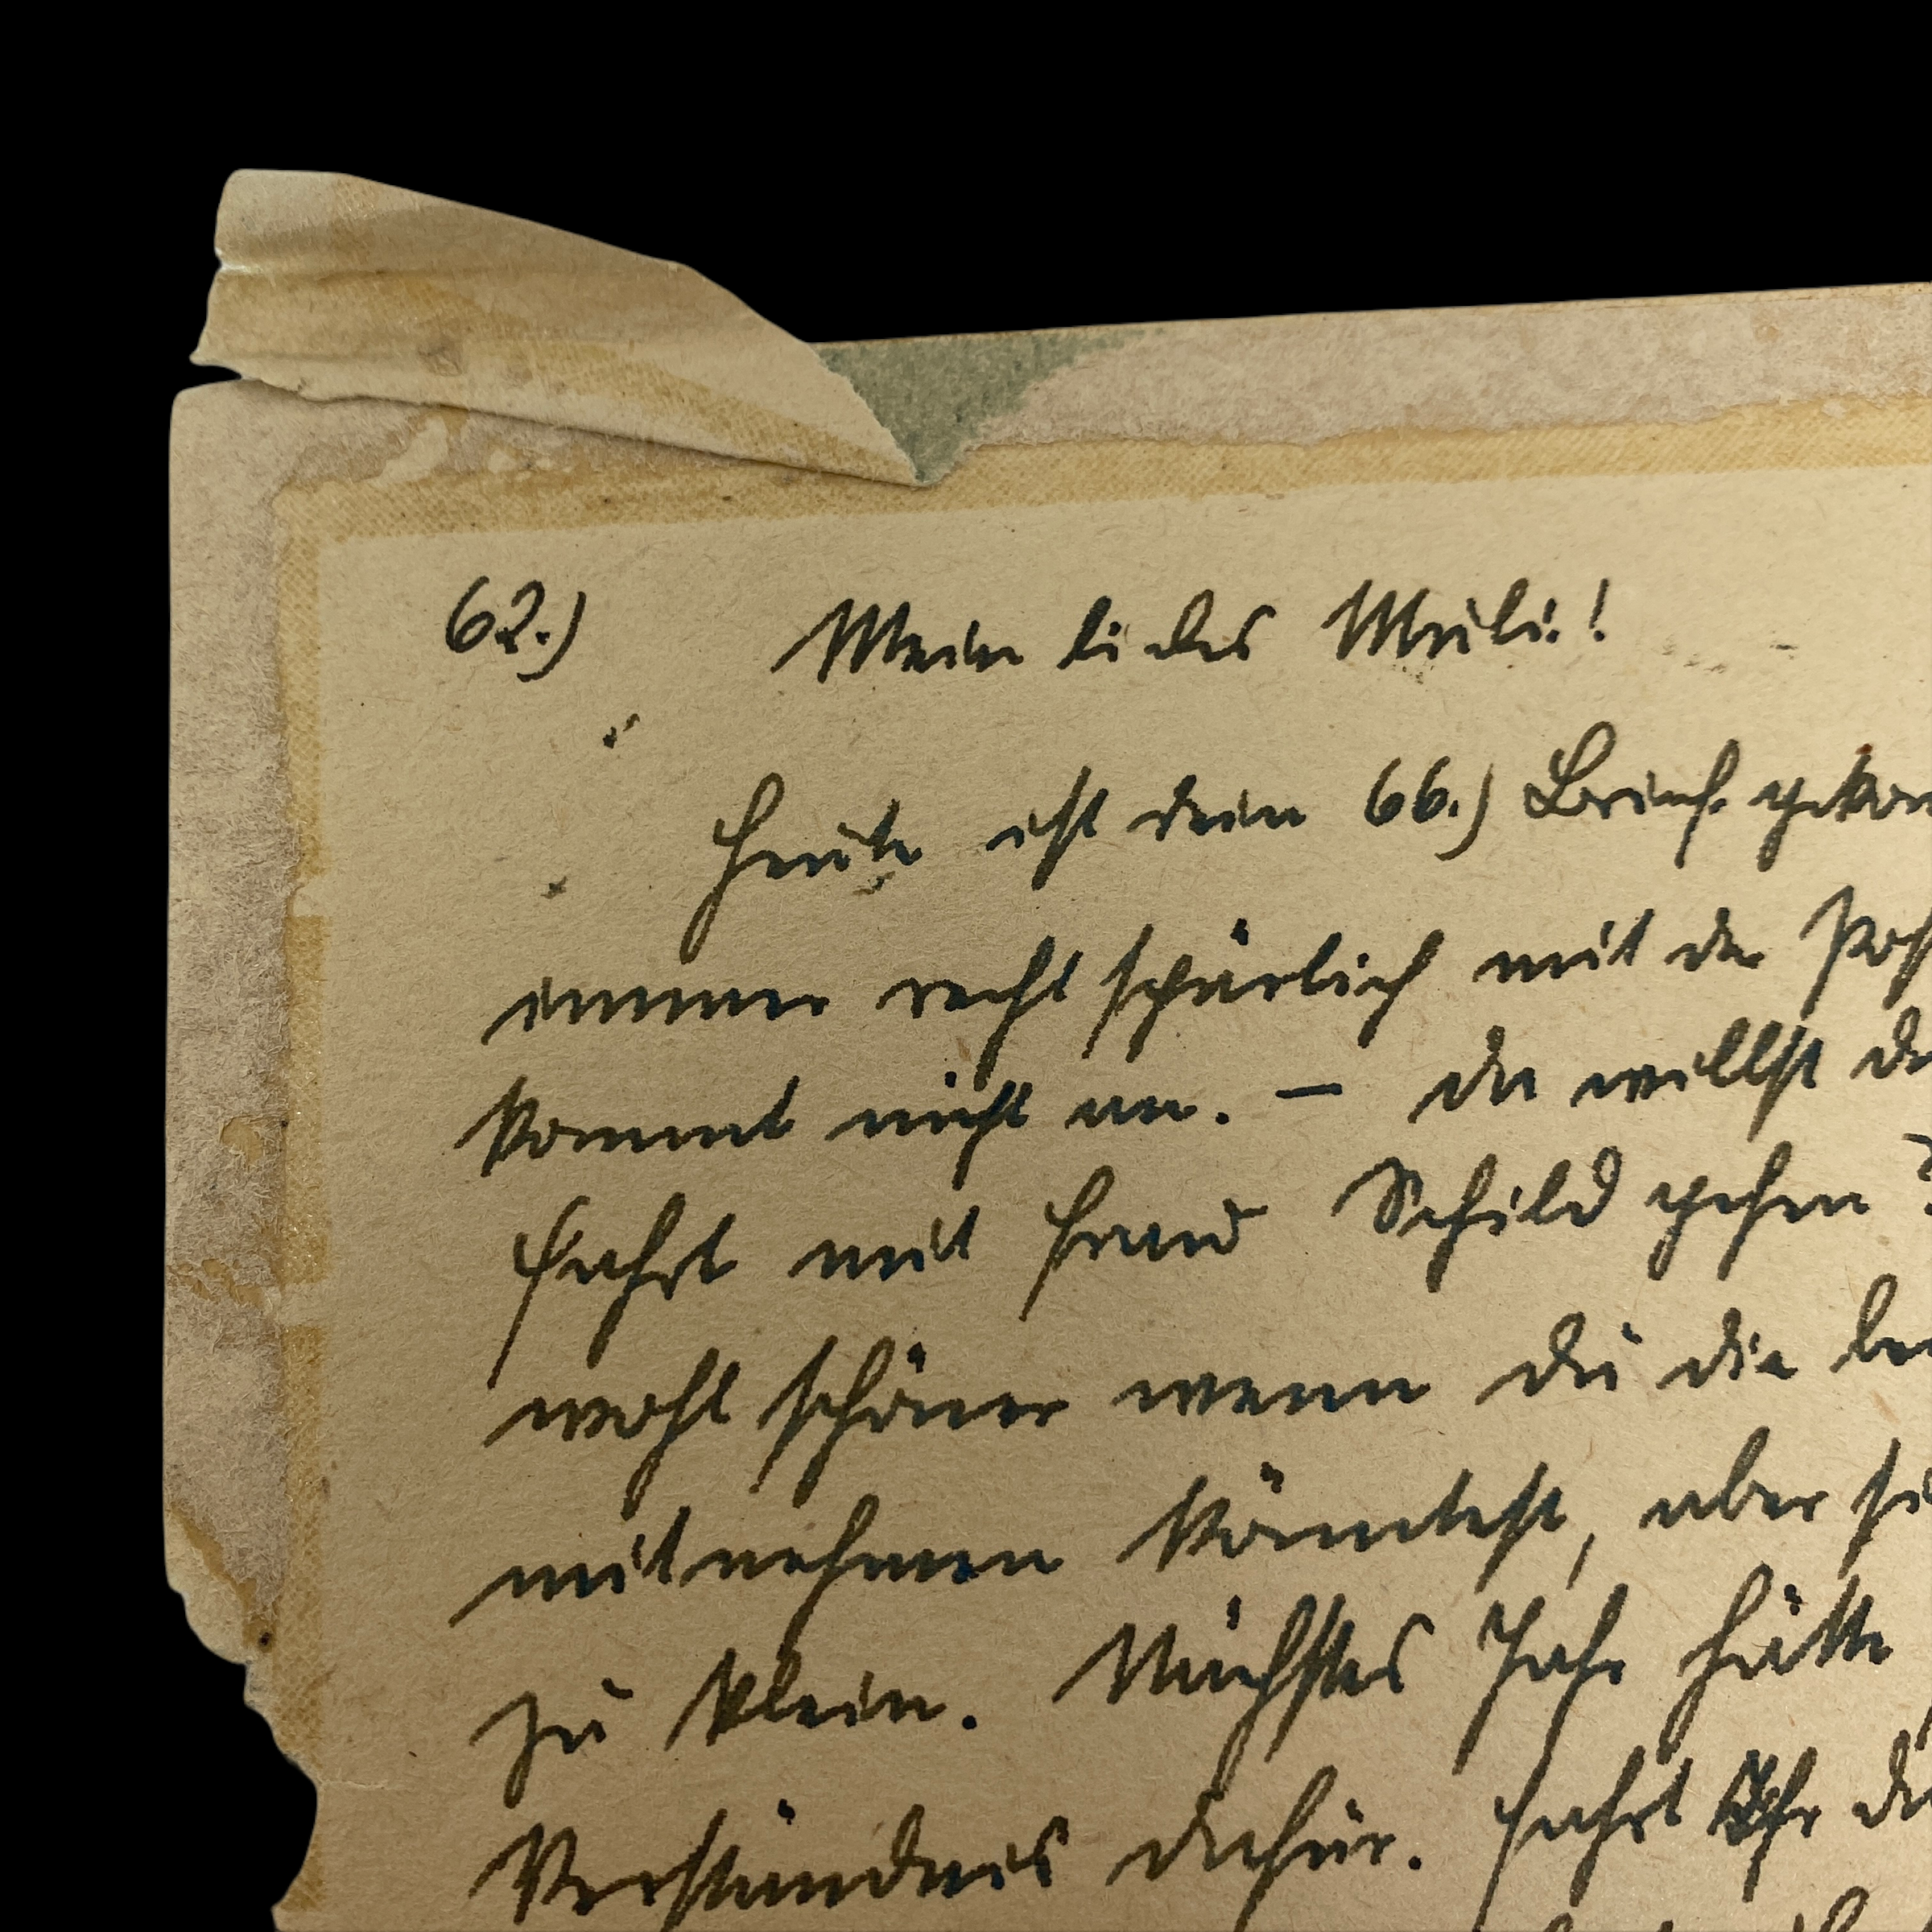 62.) Mein liebes Muli!
Heute ist dein 66.) Brief gekom
immer recht spärlich mit der Pos
kommt nicht an. — Du willst
fahrt mit Frau Schild gehen
wohl schöner wenn du die
mitnehmen könntest, aber si
zu klein. Nächstes Jahr hätte
Verständnis dafür. Fahrt Ihr